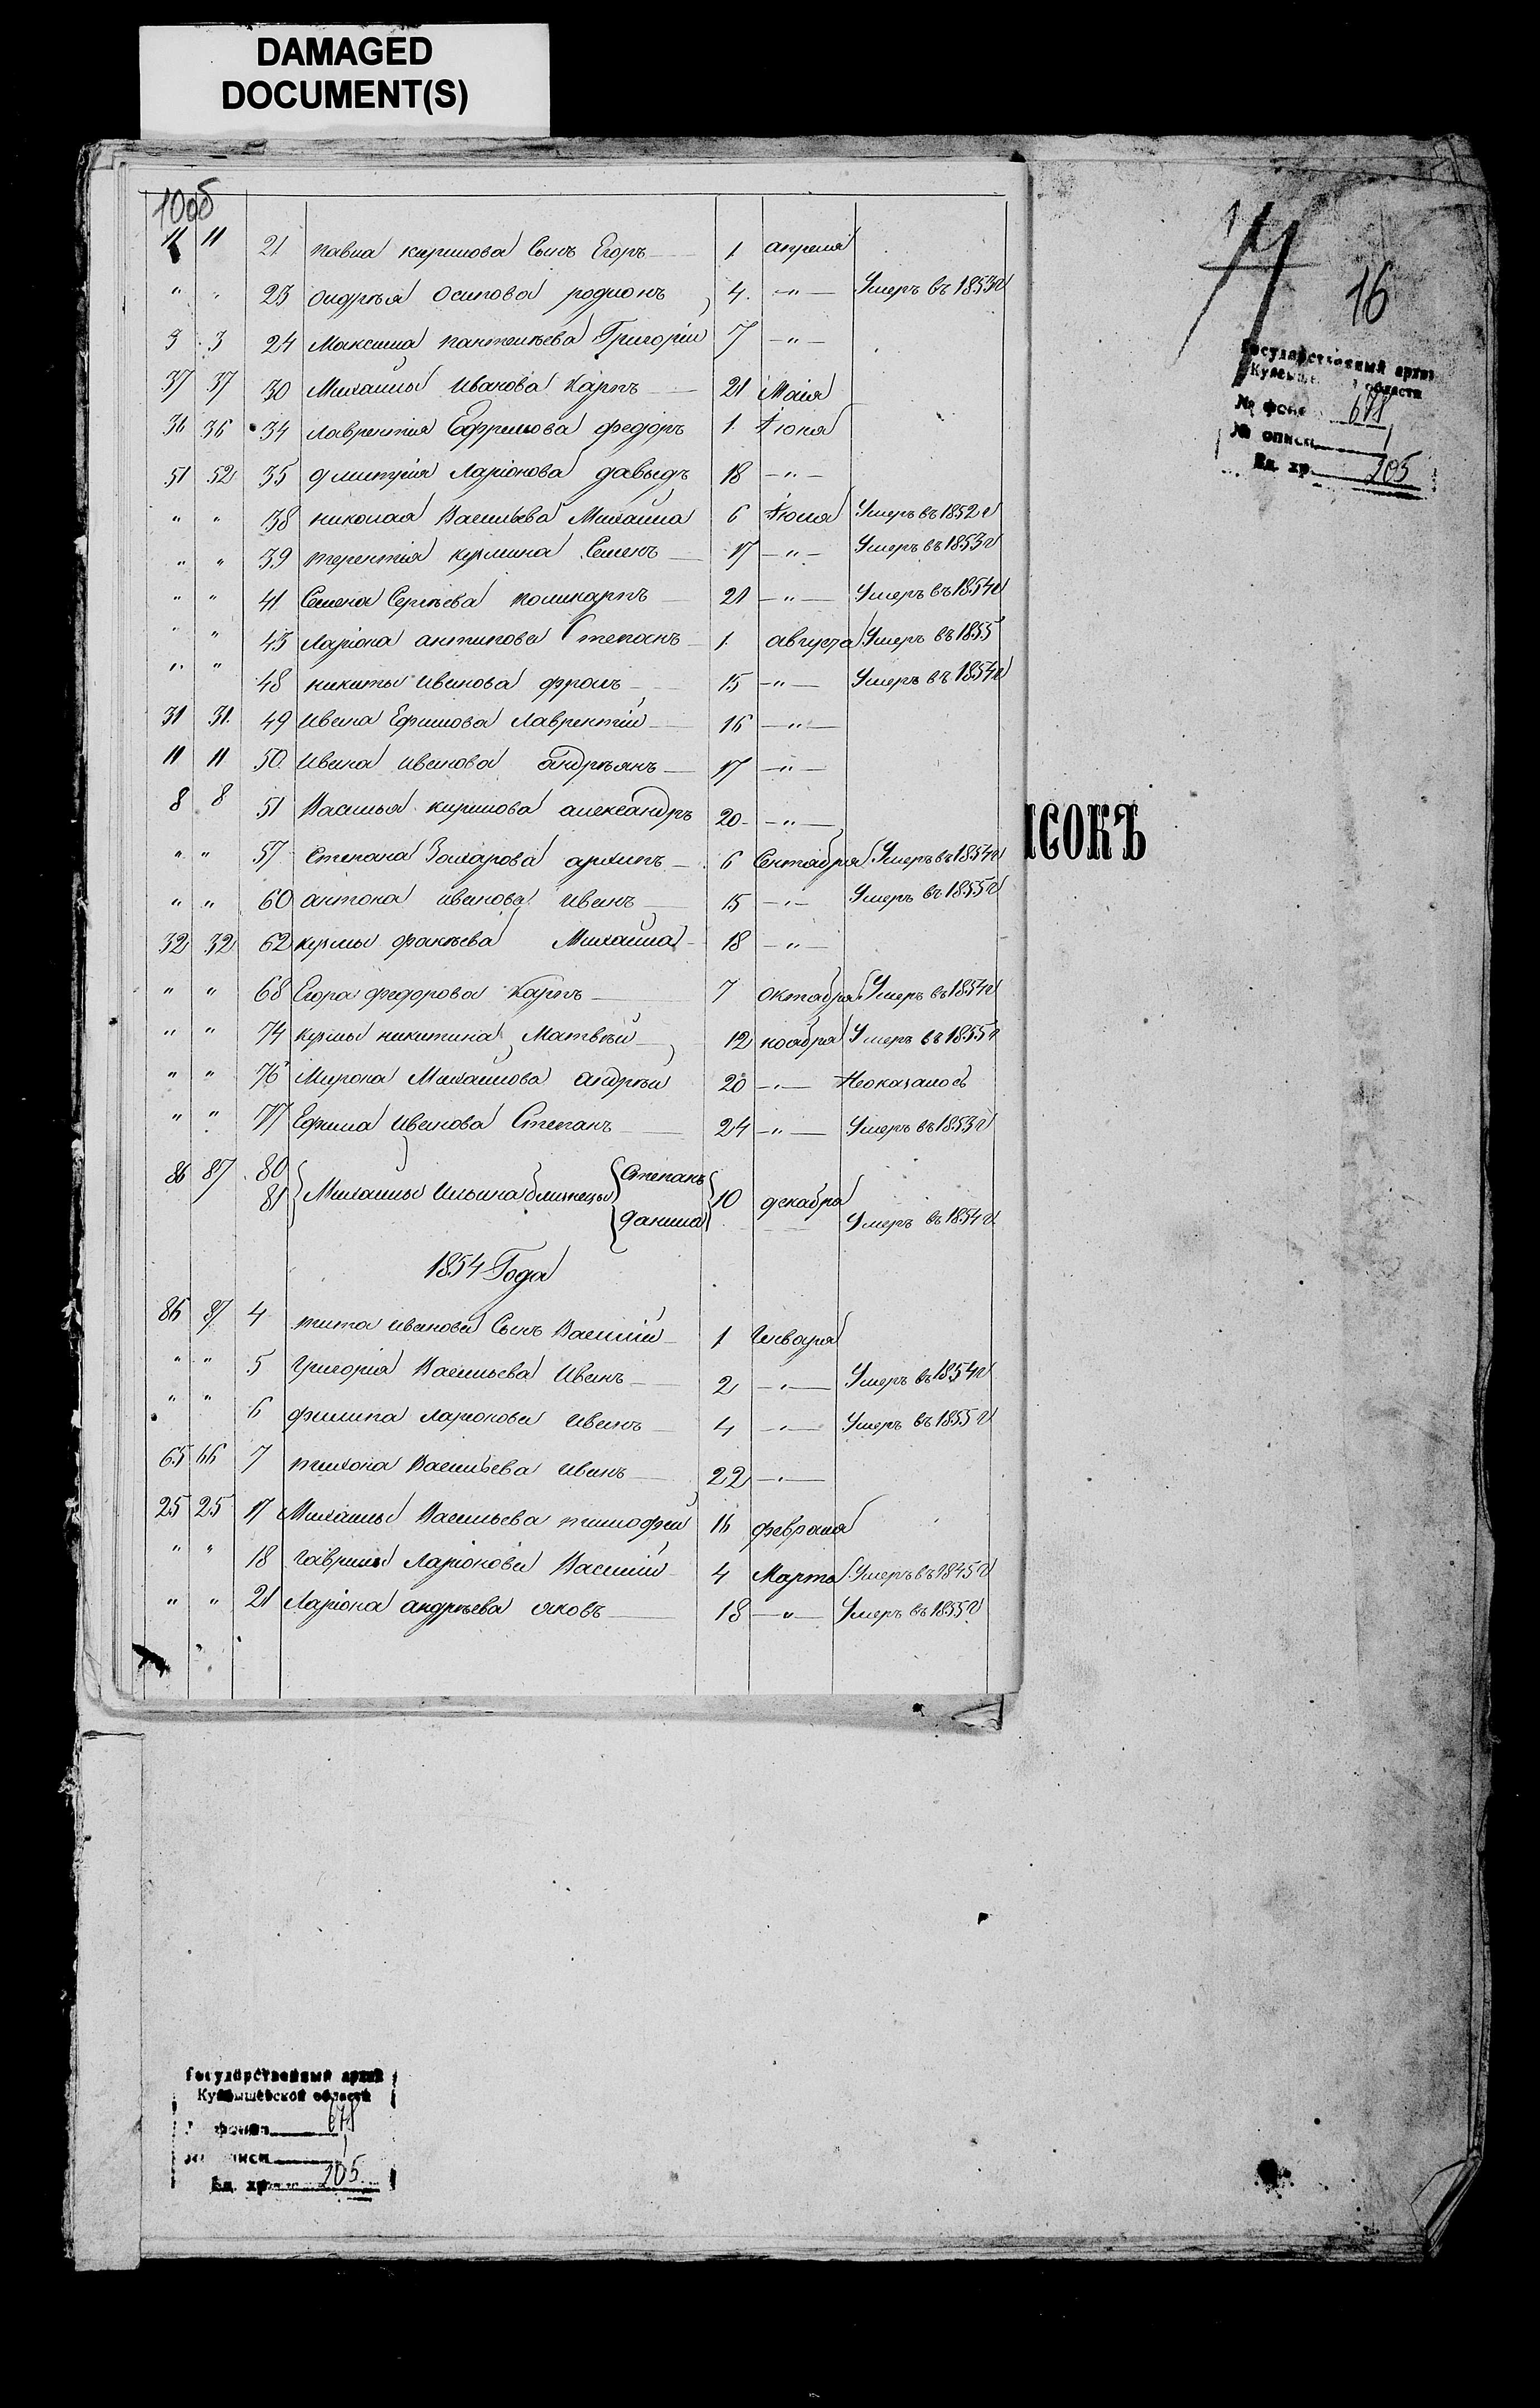 DAMAGED
DOCUMENT(S)
10об
11 11 21 павла кирилова Сынъ Егоръ 1 апреля
" " 23 андрѣя Осипова родионъ 4 " Умеръ въ 1853г
3 3 24 Максима пантелѣева Григорій 7 "
37 37 30 Михайлы Иванова Карпъ 21 Маія
36 36 34 лаврентія Ефремова федоръ 1 Іюня
51 52 35 дмитрія Ларіонова давыдъ 18 "
" " 38 николая Васильева Михайла 6 Іюля Умеръ въ 1852 г
" " 39 терентія кузмина Семенъ 17 " Умеръ въ 1853 г
" " 41 Семена Сергѣева поликарпъ 21 " Умеръ въ 1854г
" " 43 Ларіона антипова Степанъ 1 августа Умеръ въ 1855
" " 48 никиты иванова фролъ 15 " Умеръ въ 1854г
31 31 49 ивана Ефимова Лаврентій 16 "
11 11 50 ивана иванова андреянъ 17 "
8 8 51 Василья кирилова александръ 20 "
" " 57 Степана Захарова архипъ 6 Сентября Умеръ въ 1854г
" " 60 антона иванова иванъ 15 " Умеръ въ 1855г
32 32 62 кузмы фокѣева Михайла 18 "
" " 68 Егора федорова Карпъ 7 октября Умеръ въ 1854г
" " 74 кузмы никитина Матвѣй 12 ноября Умеръ въ 1855г
" " 76 Мирона Михайлова андрѣй 20 " Неоказалось
" " 77 Ефима иванова Степанъ 24 " Умеръ въ 1853г
86 87 80 Степанъ
81 Михайлы Ильина близнецы 10 декабря
данила Умеръ въ 1854 г.
1854 Года
86 87 4 тита иванова Сынъ Василій 1 Генваря
" " 5 григорія Васильева Иванъ 2 " Умеръ въ 1854г
" " 6 филипа ларионова иванъ 4 " Умеръ въ 1855 г
65 66 7 тихона Васильева иванъ 22 "
25 25 17 Михайлы Васильева тимофей 16 февраля
" " 18 гаврилы Ларіонова Василій 4 Марта Умеръ въ 1845г
" " 21 Ларіона андрѣева яковъ 18 " Умеръ въ 1855г
16
Государственный архив
Куйбышевской области
№ фонда 671
№ описи 1
Ед. хр. 205
ИСОКЪ
Государственный архив
Куйбышевской области
№ фонда 671
№ описи 1
Ед. хр. 205